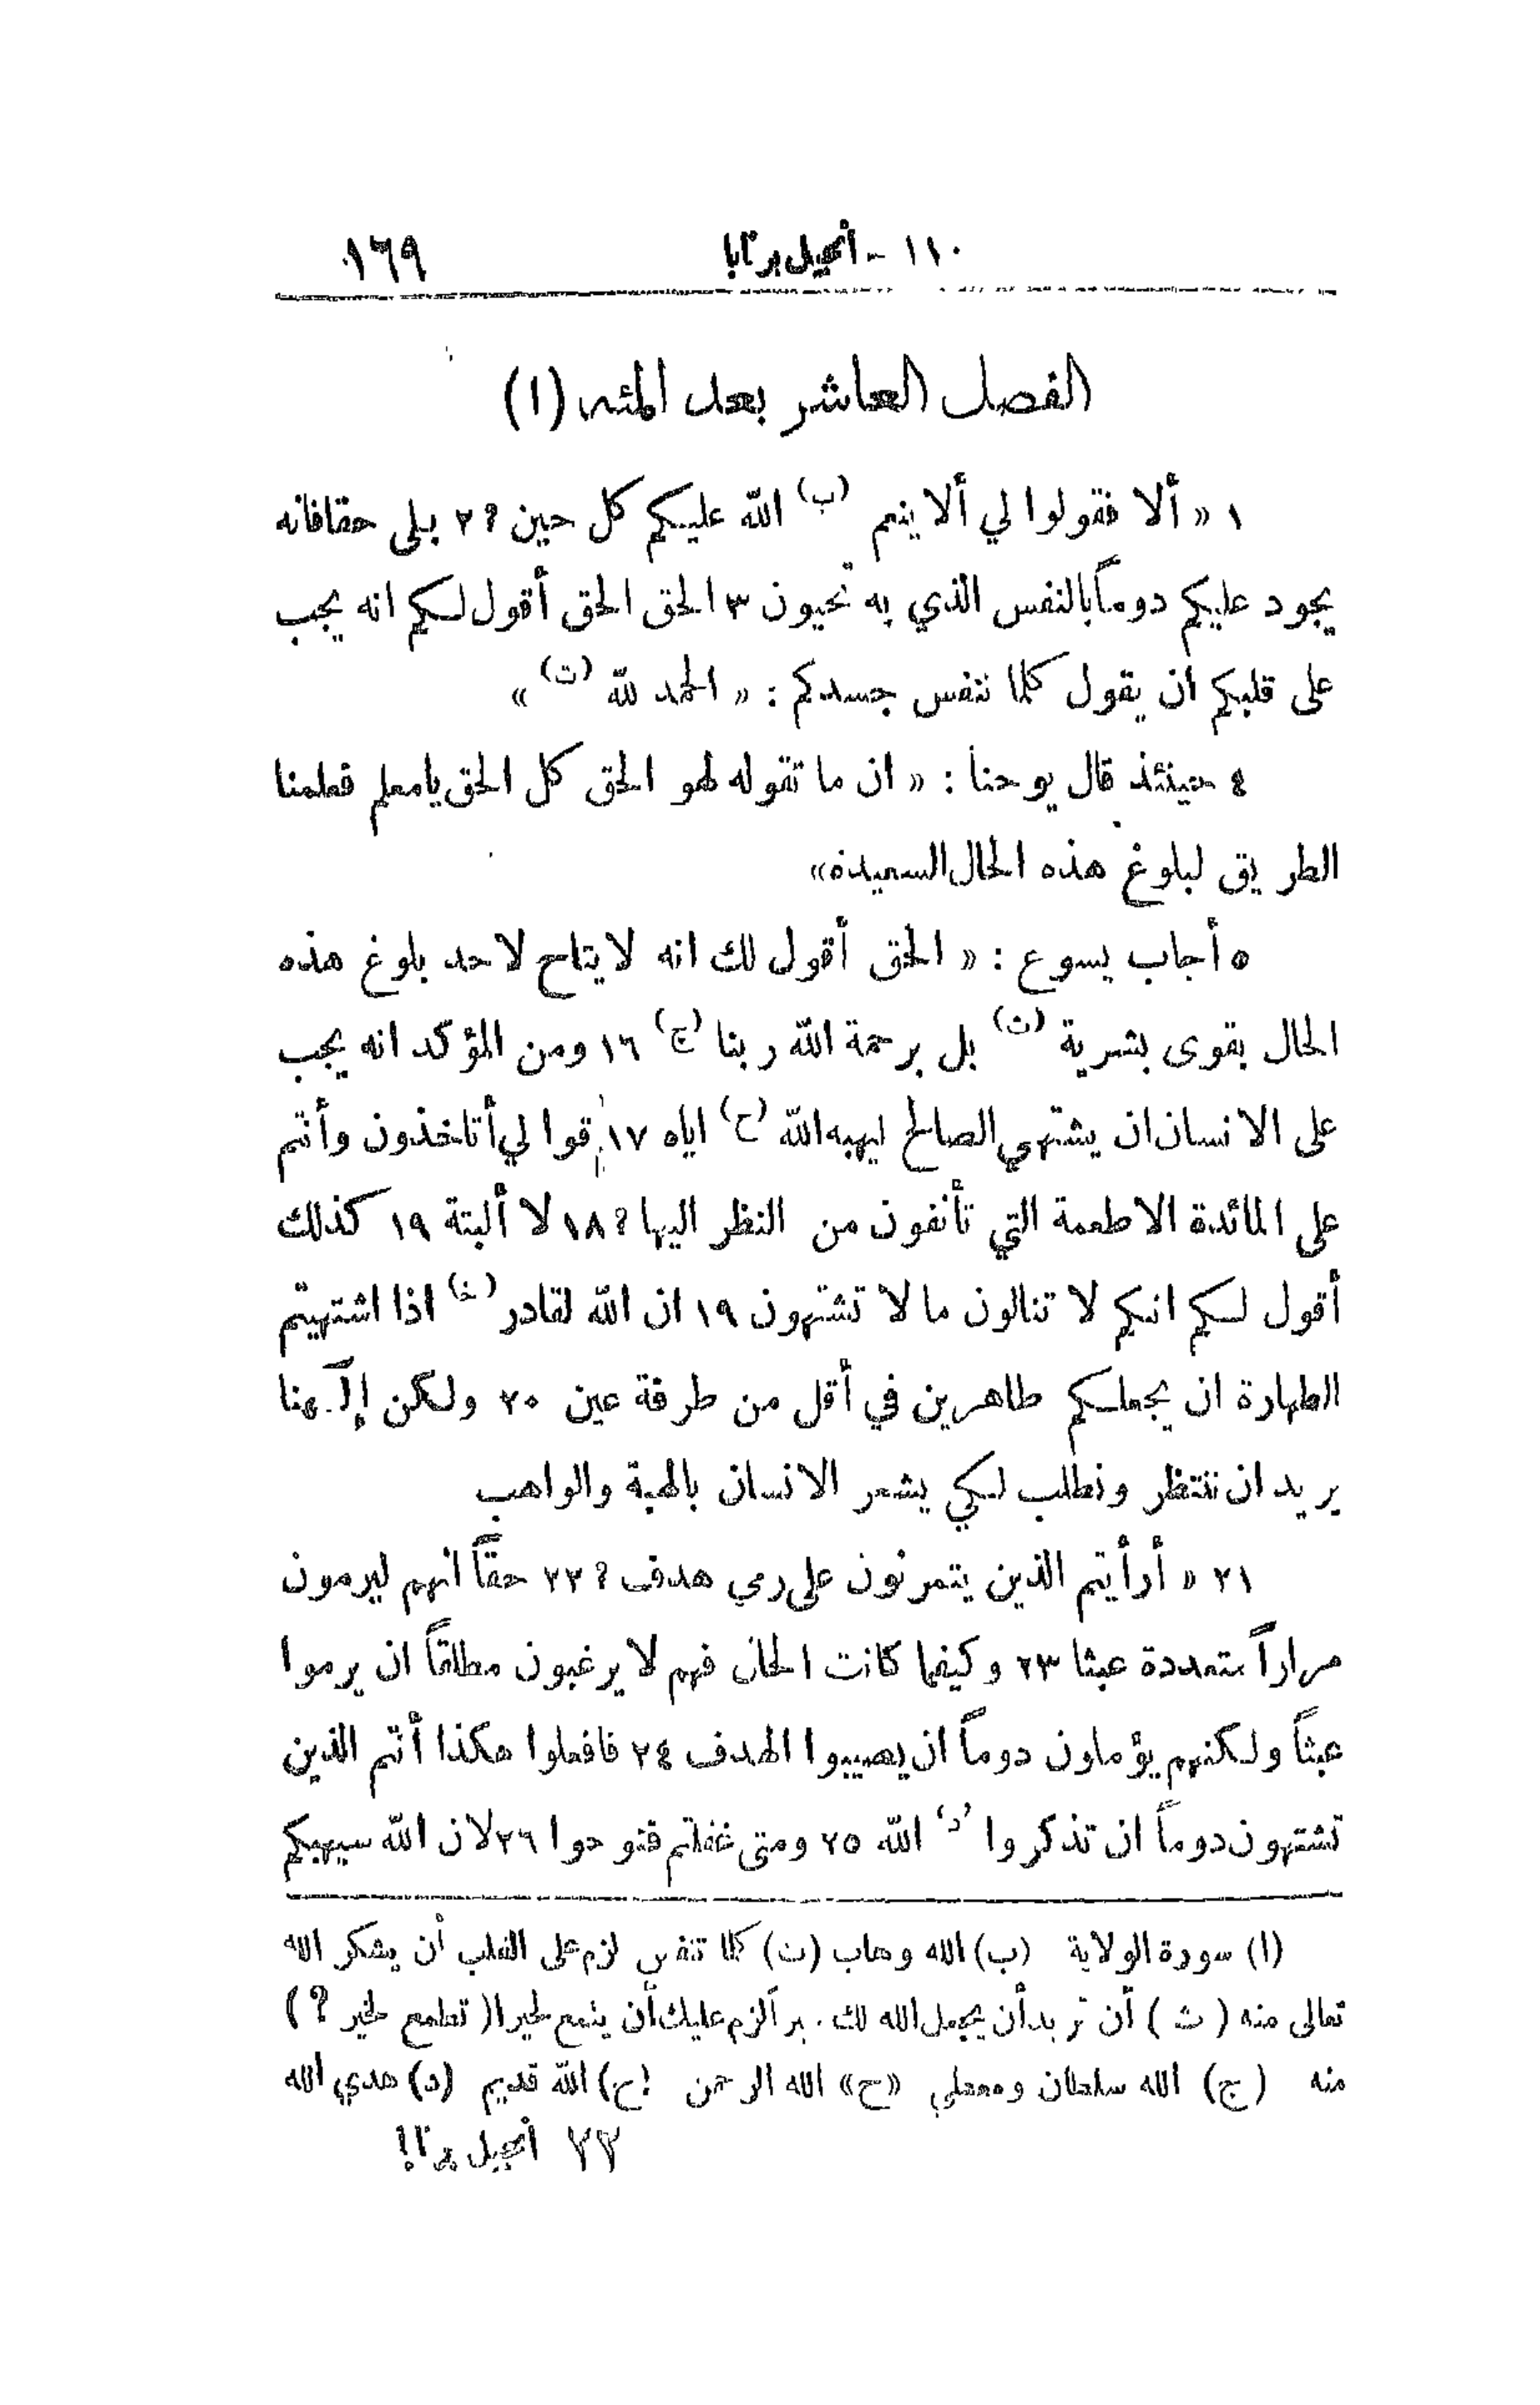 ١١٠ - أنجيل برنابا ١٦٩
الفصل العاشر بعد المئه (١)
١ « ألا فقولوا لي ألا ينعم (ب) الله عليكم كل حين ? ٢ بلى حقا فانه
يجود عليكم دوماً بالنفس الذي به تحيون ٣ الحق الحق أقول لكم انه يجب
على قلبكم ان يقول كلما تنفس جسدكم : « الحمد لله (ت) »
٤ حينئذ قال يوحنا : « ان ما تقوله لهو الحق كل الحق يا معلم فعلمنا
الطريق لبلوغ هذه الحال السعيدة»
٥ أجاب يسوع : « الحق أقول لك انه لا يتاح لاحد بلوغ هذه
الحال بقوى بشرية (ث) بل برحمة الله ربنا (ج) ١٦ ومن المؤكد انه يجب
على الانسان ان يشتهي الصالح ليهبه الله (ح) اياه ١٧ قوا لي أتاخذون وأنتم
على المائدة الاطعمة التي تأنفون من النظر اليها ? ١٨ لا ألبتة ١٩ كذلك
أقول لكم انكم لا تنالون ما لا تشتهون ١٩ ان الله لقادر (خ) اذا اشتهيتم
الطهارة ان يجعلكم طاهرين في أقل من طرفة عين ٢٠ ولكن إلٓهنا
يريد ان ننتظر ونطلب لكي يشعر الانسان بالهبة والواهب
٢١ « أرأيتم الذين يتمرنون على رمي هدف ? ٢٢ حقاً انهم ليرمون
مراراً متعددة عبثا ٢٣ وكيفما كانت الحال فهم لا يرغبون مطلقاً ان يرموا
عبثاً ولكنهم يؤملون دوماً ان يصيبوا الهدف ٢٤ فافعلوا هكذا أنتم الذين
تشتهون دوماً ان تذكروا (د) الله ٢٥ ومتى غفلتم فنوحوا ٢٦ لان الله سيهبكم
(ا) سورة الولاية (ب) الله وهاب (ت) كلما تنفس لزم على القلب أن يشكر الله
تعالى منه (ث) أن تريد أن يجعل الله لك . برآلزم عليك أن يتمع لخيرا ( تطمع لخير ? )
منه (ج) الله سلطان ومعطي «ح» الله الرحمن (خ) الله قديم (د) هدي الله
٢٢ أنجيل برنابا